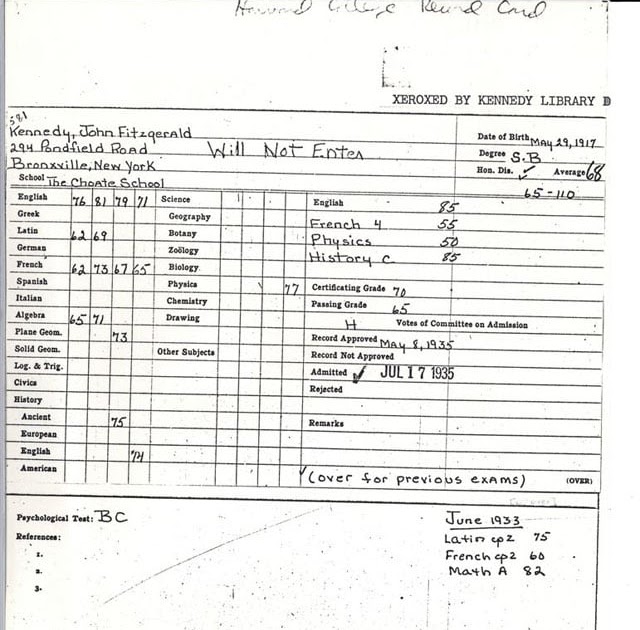 Harvard College Record Card
XEROXED BY KENNEDY LIBRARY
581
Kennedy, John Fitzgerald
294 Pondfield Road
Bronxville, New York
Will Not Enter
Date of Birth May 29, 1917
Degree S.B
Hon. Dis. ✓ Average 68
65-110
School The Choate School
English 76 81 79 71 Science
Greek Geography
Latin 62 69 Botany
German Zoölogy
French 62 73 67 65 Biology
Spanish Physics 77
Italian Chemistry
Algebra 65 71 Drawing
Plane Geom. 73
Solid Geom. Other Subjects
Log. & Trig.
Civics
History
Ancient 75
European
English 74
American
English 85
French 4 55
Physics 50
History C 85
Certificating Grade 70
Passing Grade 65
H Votes of Committee on Admission
Record Approved May 8, 1935
Record Not Approved
Admitted ✓ JUL 17 1935
Rejected
Remarks
✓(over for previous exams) (OVER)
Psychological Test: BC
References:
1.
2.
3.
June 1933
Latin cp2 75
French cp2 60
Math A 82